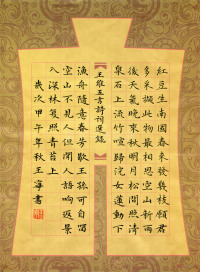 紅豆生南國春來發幾枝願君
多采擷此物最相思空山新雨
後天氣晚來秋明月松間照清
泉石上流竹喧歸浣女蓮動下
王維五言詩詞選錄
漁舟隨意春芳歇王孫可自留
空山不見人但聞人語響返景
入深林復照青苔上
歲次甲午年秋王寧書